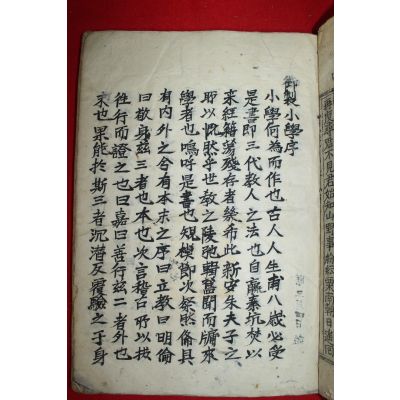 御製小學序
小學何為而作也古人人生甫八歲必受
是書即三代教人之法也自嬴秦坑焚以
来經籍蕩殘存者幾希此新安朱夫子之
所以慨然乎世教之陵弛輯舊聞而牖來
學者也嗚呼是書也規模節次粲然俻具
有内外之分有本末之序曰立教曰明倫
曰敬身兹三者也本也次言稽古所以摭
徃行而證之也曰嘉曰善行兹二者外也
末也果能於斯三者沉潛反覆驗之于身